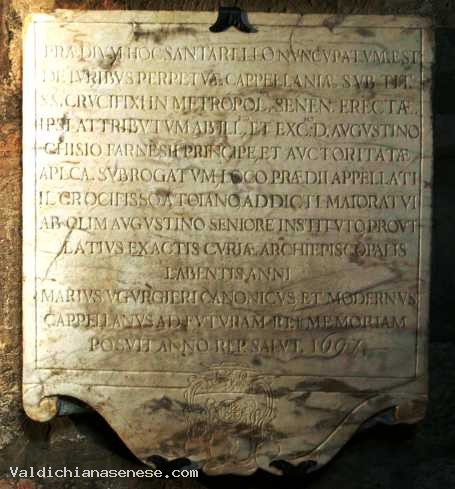 PRÆDIVM HOC SANTARELLO NVNCVPATVM EST
DE IVRIBVS PERPETVÆ CAPPELLANIÆ SVB TIT.
SS. CRVCIFIXI IN METROPOL. SENEN. ERECTÆ
IPSI ATTRIBVTVM AB ILL. ET EXC. D. AVGVSTINO
CHISIO FARNESII PRINCIPE, ET AVCTORITATÆ
APLCA. SVBROGATVM LOCO PRÆDII APPELLATI
IL CROCIFISSO A TOIANO ADDICTI MAIORATVI
AB OLIM AVGVSTINO SENIORE INSTITVTO PROVT
LATIVS EX ACTIS CVRIÆ ARCHIEPISCOPALIS
LABENTIS ANNI
MARIVS VGVRGIERI CANONICVS ET MODERNVS
CAPPELLANVS AD FVTVRAM REI MEMORIAM
POSVIT ANNO REP. SALVT. 1697
Valdichianasenese.com